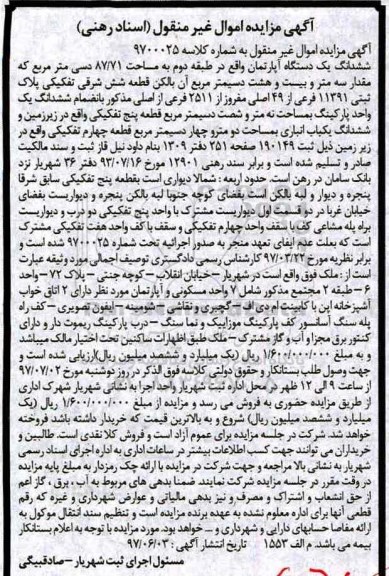 آگهی مزایده اموال غیر منقول (اسناد رهنی)
آگهی مزایده اموال غیر منقول به شماره کلاسه ۹۷۰۰۰۲۵
ششدانگ یک دستگاه آپارتمان واقع در طبقه دوم به مساحت ۸۷/۷۱ دسی متر مربع که
مقدار سه متر و بیست و هشت دسیمتر مربع آن بالکن قطعه شش شرقی تفکیکی پلاک
ثبتی ۱۱۳۹۱ فرعی از ۴۹ اصلی مفروز از ۲۵۱۱ فرعی از اصلی مذکور بانضمام ششدانگ یک
واحد پارکینگ بمساحت نه متر و شصت دسیمتر مربع قطعه پنج تفکیکی واقع در زیرزمین و
ششدانگ یکباب انباری بمساحت دو مترو چهار دسیمتر مربع قطعه چهارم تفکیکی واقع در
زیر زمین ذیل ثبت ۱۹۰۱۴۹ صفحه ۲۵۱ دفتر ۱۳۰۹ بنام داود نیل قاز ثبت و سند مالکیت
صادر و تسلیم شده است و برابر سند رهنی ۱۲۹۰۱ مورخ ۹۳/۰۷/۱۶ دفتر ۳۶ شهریار نزد
بانک سامان در رهن است. حدود اربعه : شمالا دیواری است بقطعه پنج تفکیکی سابق شرقا
پنجره و دیوار و لبه بالکن است بفضای کوچه جنوبا لبه بالکن پنجره و دیواریست بفضای
خیابان غربا در دو قسمت اول دیواریست مشترک با واحد پنج تفکیکی دو درب و دیواریست
براه پله مشاعی کف با سقف واحد چهارم تفکیکی و سقف با کف واحد هفت تفکیکی مشترک
است که بعلت عدم ایفای تعهد منجر به صدور اجرائیه تحت شماره ۹۷۰۰۰۲۵ شده است و
برابر نظریه مورخ ۹۷/۰۳/۲۲ کارشناس رسمی دادگستری توصیف اجمالی مورد وثیقه عبارت
است از : ملک فوق واقع است در شهریار – خیابان انقلاب – کوچه جنتی – پلاک ۷۲ – واحد
۶ – طبقه ۲ مجتمع مذکور شامل ۷ واحد مسکونی و آپارتمان مورد نظر دارای ۲ اتاق خواب
آشپزخانه اپن با کابینت ام دی اف – گچبری و نقاشی – شومینه – ایفون تصویری – کف راه
پله سنگ آسانسور کف پارکینگ موزاییک و نما سنگ – درب پارکینگ ریموت دار و دارای
کنتور برق مجزا و آب و گاز مشترک – ملک طبق اظهارات ساکنین تحت اختیار مالک میباشد
و به مبلغ ۱/۶۰۰/۰۰۰/۰۰۰ ریال (یک میلیارد و ششصد میلیون ریال)ارزیابی شده است و
جهت وصول طلب بستانکار و حقوق دولتی کلاسه فوق الذکر در روز دوشنبه مورخ ۹۷/۰۷/۰۲
از ساعت ۹ الی ۱۲ ظهر در محل اداره ثبت شهریار واحد اجرا به نشانی شهریار شهرک اداری
از طریق مزایده حضوری به فروش می رسد و مزایده از مبلغ ۱/۶۰۰/۰۰۰/۰۰۰ ریال (یک
میلیارد و ششصد میلیون ریال) شروع و به بالاترین قیمت که خریدار داشته باشد فروخته
خواهد شد. شرکت در جلسه مزایده برای عموم آزاد است و فروش کلا نقدی است. طالبین و
خریداران می توانند جهت کسب اطلاعات بیشتر در ساعات اداری به اداره اجرای اسناد رسمی
شهریار به نشانی بالا مراجعه و جهت شرکت در مزایده با ارائه چک رمزدار به مبلغ پایه مزایده
در وقت مقرر در جلسه مزایده شرکت نمایند. ضمنا بدهی های مربوط به آب ، برق ، گاز اعم
از حق انشعاب و اشتراک و مصرف و نیز بدهی مالیاتی و عوارض شهرداری و غیره که رقم
قطعی آنها برای اداره معلوم نشده به عهده برنده مزایده است و تنظیم سند انتقال موکول به
ارائه مفاصا حسابهای دارایی و شهرداری و ... خواهد بود. مورد مزایده با توجه به اعلام بستانکار
بیمه می باشد. م الف ۱۵۵۳ تاریخ انتشار آگهی : ۹۷/۰۶/۰۳
مسئول اجرای ثبت شهریار – صادقبیگی